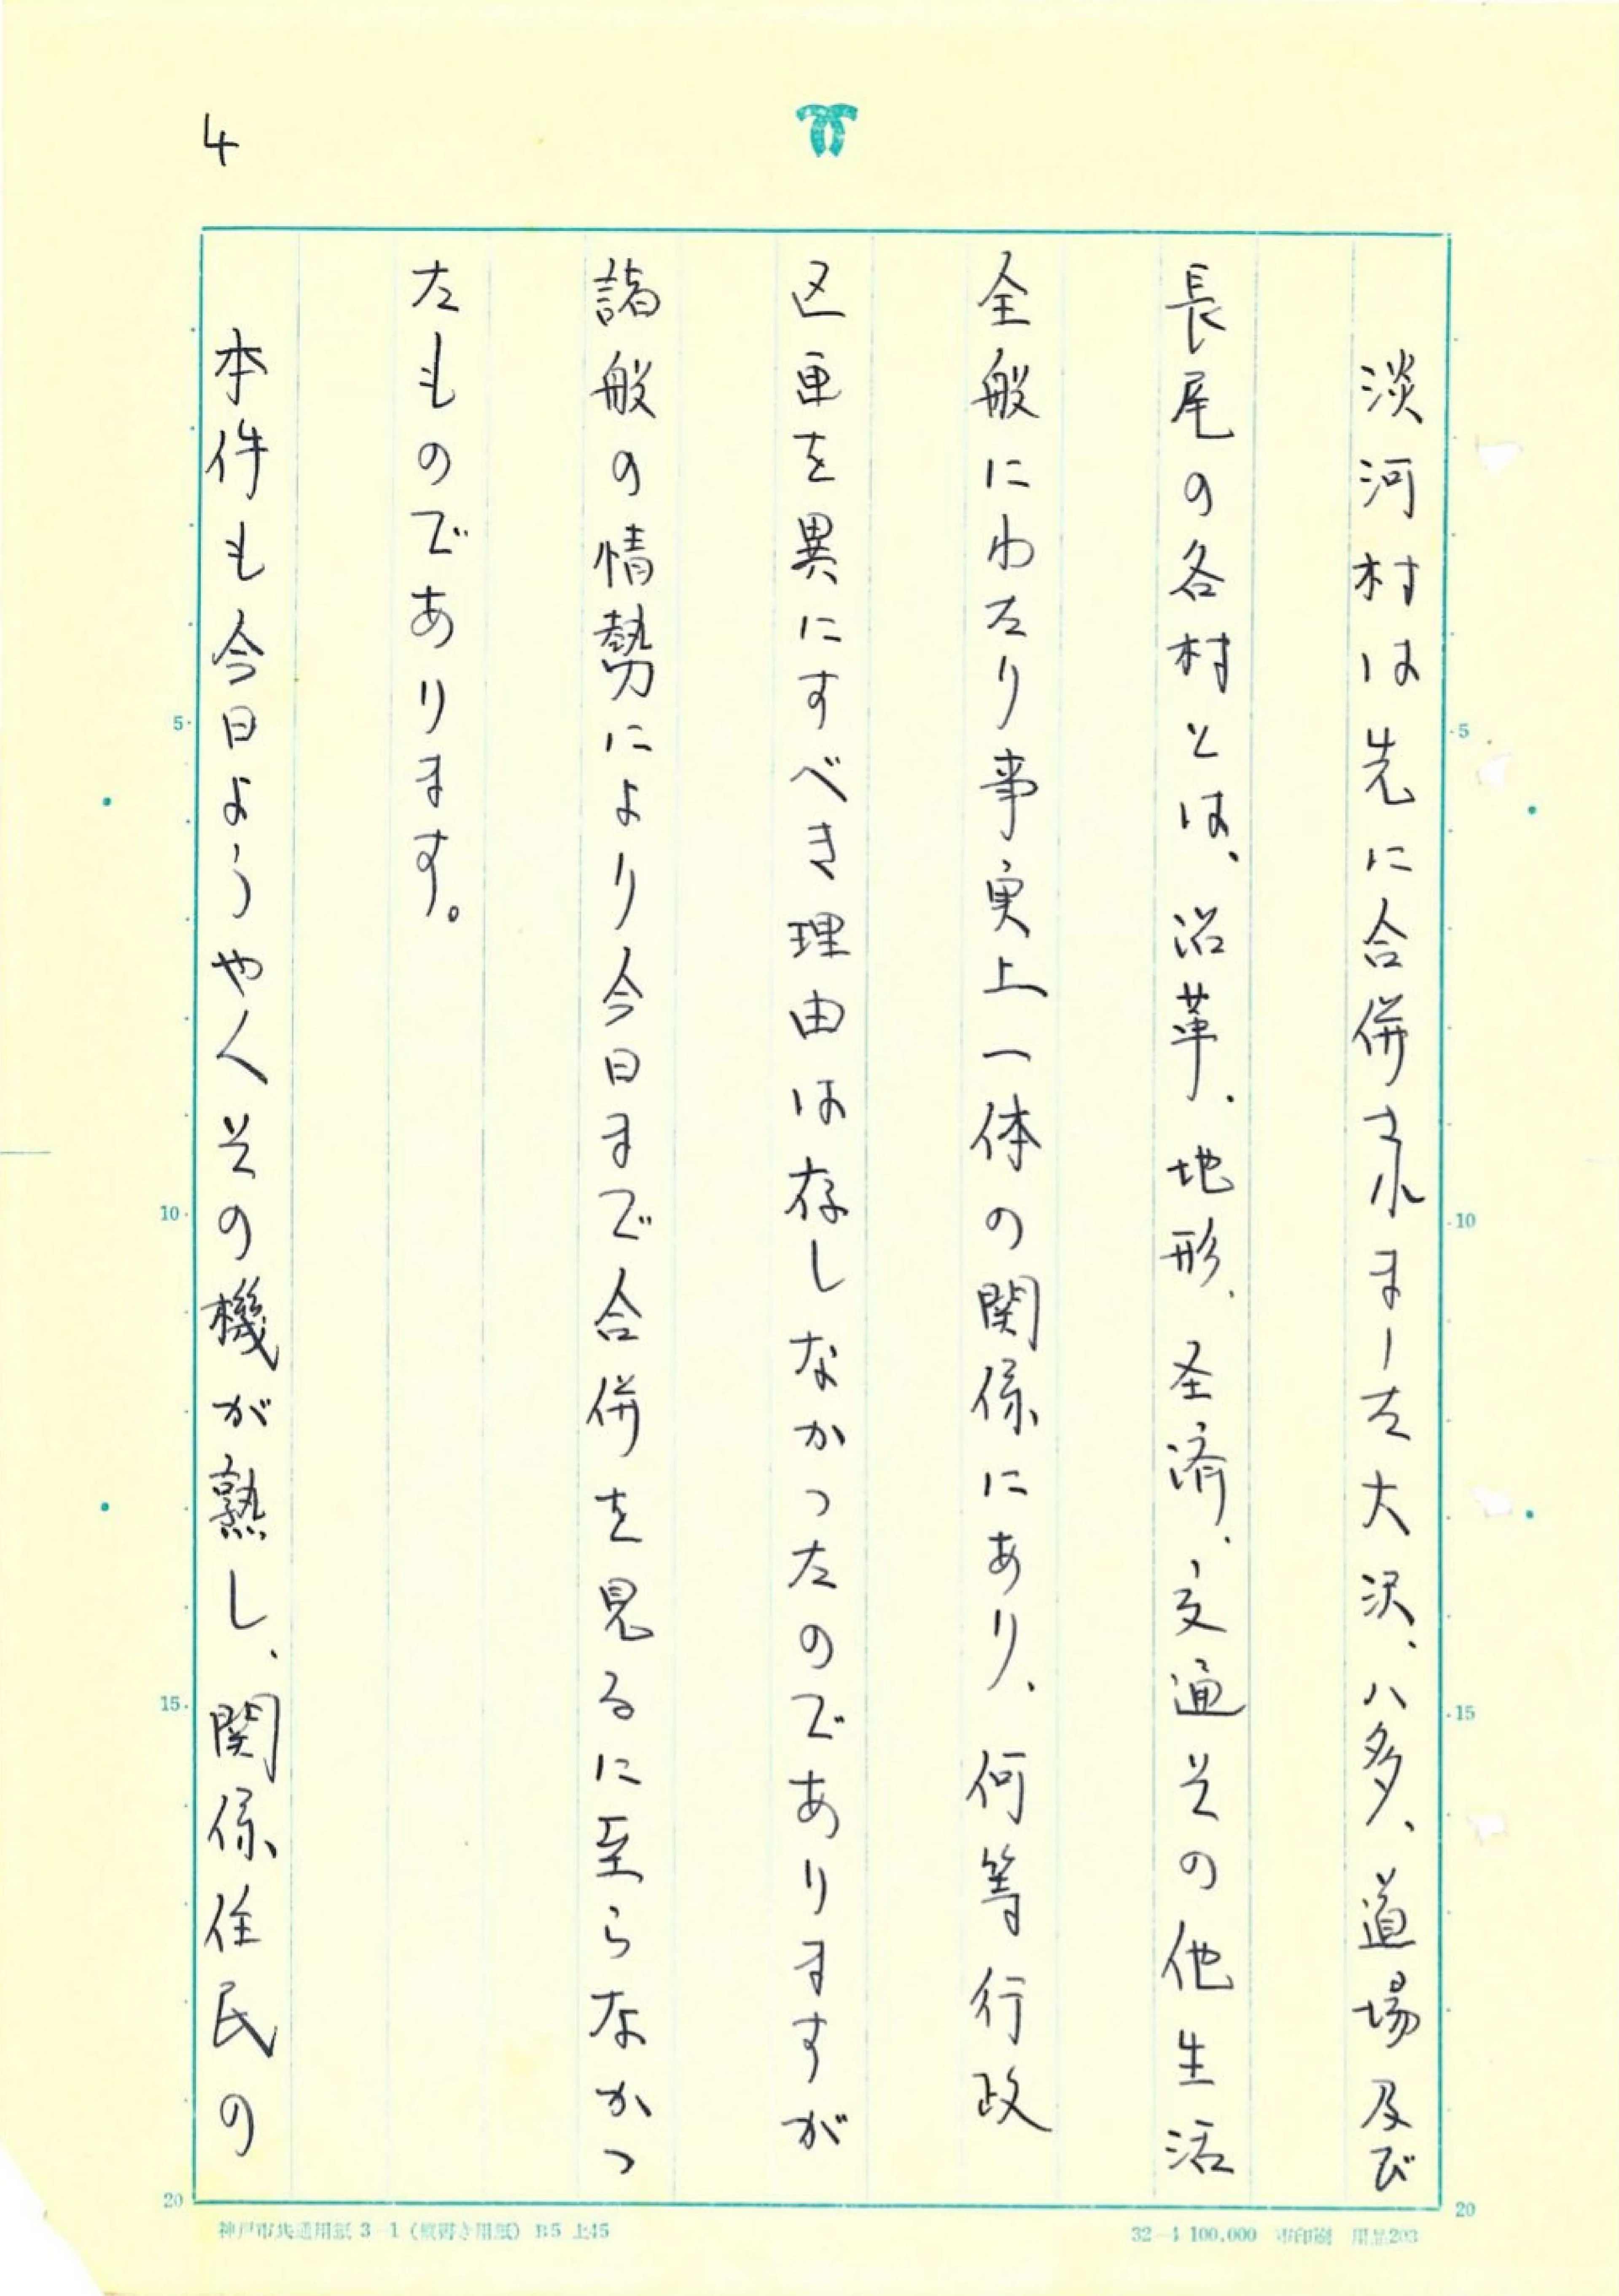 4
淡河村は先に合併されました大沢、八多、道場及び
長尾の各村とは、沿革、地形、圣済、交通その他生活
全般にわたり事実上一体の関係にあり、何等行政
区画を異にすべき理由は存しなかったのでありますが
諸般の情勢により今日まで合併を見るに至らなかっ
たものであります。
本件も今日ようやくその機が熟し、関係住民の
5
10
15
20
5
10
15
20
神戸市共通用紙 3-1 (縦書き用紙) B5 上45
32-4 100,000 市印刷 用品203